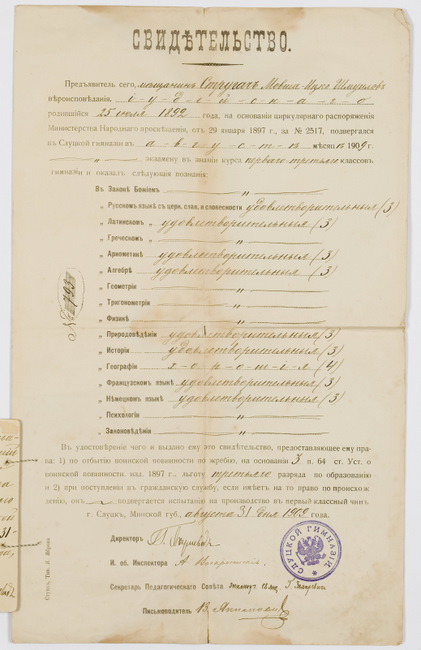 СВИДѢТЕЛЬСТВО.
Предъявитель сего, мѣщанинъ Стругачъ Мовша-Ицко Шмуиловъ
вѣроисповѣданія, іудейскаго
родившійся 25 іюля 1892 года, на основаніи циркулярнаго распоряженія
Министерства Народнаго просвѣщенія, отъ 29 января 1897 г., за № 2517, подвергался
въ Слуцкой гимназіи въ августѣ мѣсяцѣ 1909 г.
„ экзамену въ знаніи курса перваго третьяго классовъ
гимназіи и оказалъ слѣдующія познанія:
Въ Законѣ Божіемъ „
„ Русскомъ языкѣ съ церк. слав. и словесности удовлетворительныя (3)
„ Латинскомъ „ удовлетворительныя (3)
„ Греческомъ „ „
„ Ариѳметикѣ удовлетворительныя (3)
„ Алгебрѣ удовлетворительныя (3)
„ Геометріи „
„ Тригонометріи „
„ Физикѣ „
„ Природовѣдѣніи удовлетворительныя (3)
„ Исторіи удовлетворительныя (3)
„ Географіи хорошія (4)
„ Французскомъ языкѣ удовлетворительныя (3)
„ Нѣмецкомъ языкѣ удовлетворительныя (3)
„ Психологіи „
„ Законовѣдѣніи „
Въ удостовѣреніе чего и выдано ему это свидѣтельство, предоставляющее ему пра-
ва: 1) по отбытію воинской повинности по жребію, на основаніи 3 п. 64 ст. Уст. о
воинской повинности изд. 1897 г., льготу третьяго разряда по образованію
и 2) при поступленіи въ гражданскую службу, если имѣетъ на то право по происхож-
денію, онъ подвергается испытанію на производство въ первый классный чинъ
г. Слуцкъ, Минской губ., августа 31 дня 1909 года.
Директоръ
И. об. Инспектора А.
Секретарь Педагогическаго Совѣта
Письмоводитель В.
СЛУЦКОЙ ГИМНАЗІИ
№ 1793
Слуцкъ, Тип.